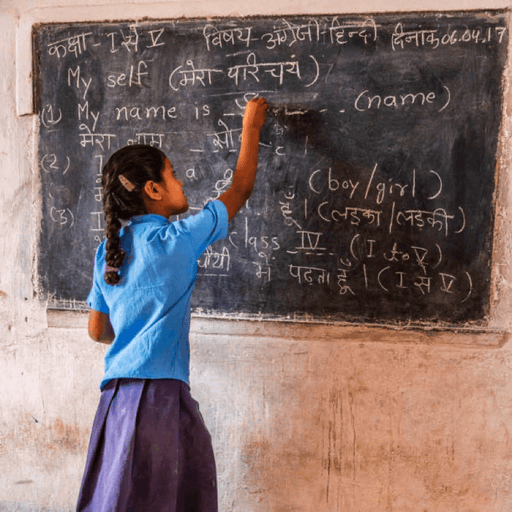 कक्षा - I से V विषय अंग्रेजी/हिन्दी दिनांक 06.04.17
My self (मेरा परिचय)
(1) My name is (name)
मेरा नाम
(2) a (boy/girl)
(3) हूँ। (लड़का/लड़की)
Class IV (I to V)
में पढ़ता हूँ। (I से V)